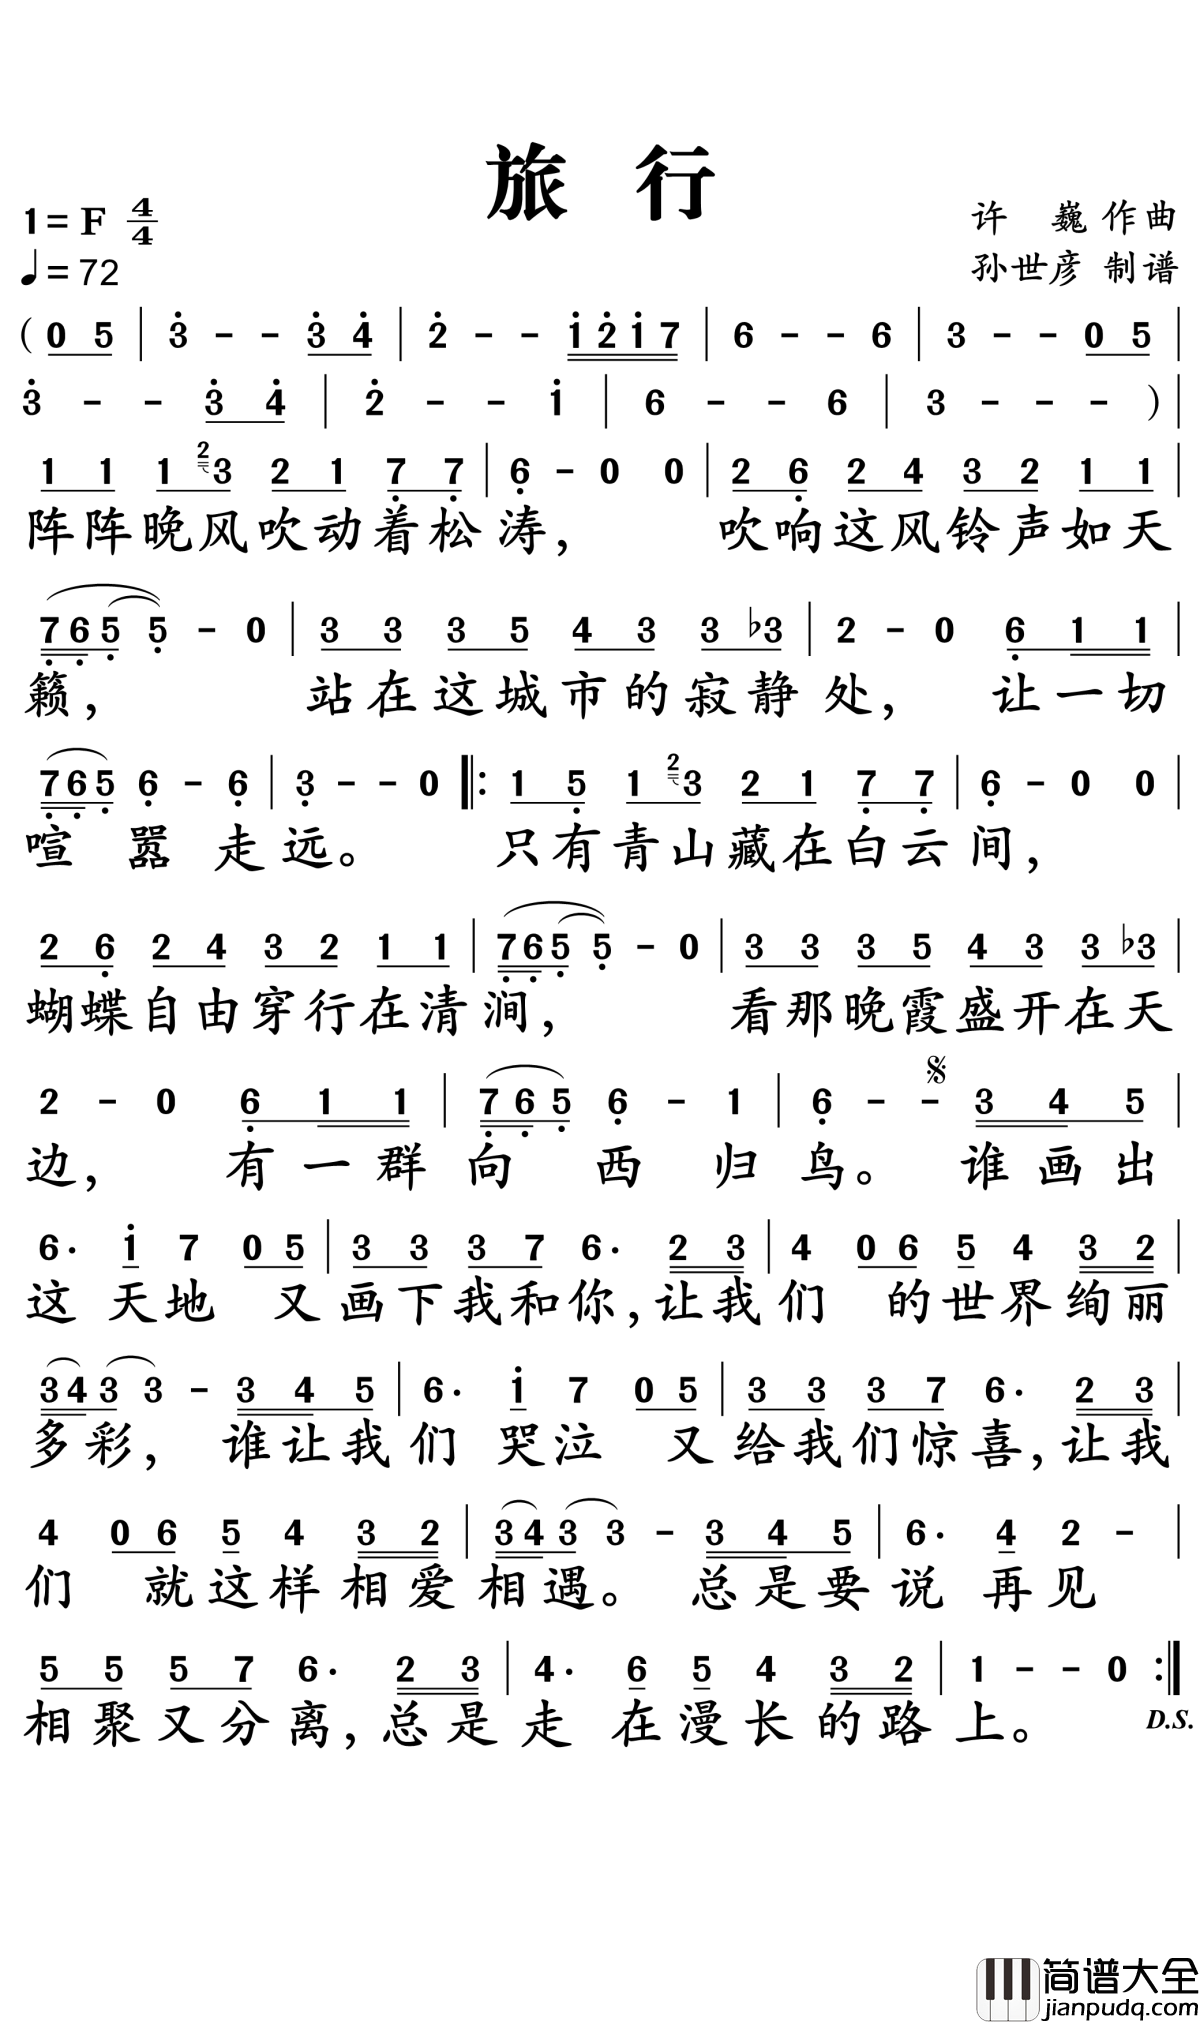 旅 行
1= F 4/4
许 巍 作曲
♩= 72
孙世彦 制谱
( 0 5 | 3̇ - - 3̇ 4̇ | 2̇ - - 1̇ 2̇ 1̇ 7 | 6 - - 6 | 3 - - 0 5 |
3̇ - - 3̇ 4̇ | 2̇ - - 1̇ | 6 - - 6 | 3 - - - ) |
1 1 1 2 3 2 1 7̣ 7̣ | 6̣ - 0 0 | 2 6̣ 2 4 3 2 1 1 |
阵阵晚风吹动着松涛, 吹响这风铃声如天
7̣ 6̣ 5̣ 5̣ - 0 | 3 3 3 5 4 3 3 ♭3 | 2 - 0 6̣ 1 1 |
籁, 站在这城市的寂静处, 让一切
7̣ 6̣ 5̣ 6̣ - 6̣ | 3̣ - - 0 ‖: 1 5̣ 1 2 3 2 1 7̣ 7̣ | 6̣ - 0 0 |
喧嚣走远。 只有青山藏在白云间,
2 6̣ 2 4 3 2 1 1 | 7̣ 6̣ 5̣ 5̣ - 0 | 3 3 3 5 4 3 3 ♭3 |
蝴蝶自由穿行在清涧, 看那晚霞盛开在天
𝄋
2 - 0 6̣ 1 1 | 7̣ 6̣ 5̣ 6̣ - 1 | 6̣ - - 3 4 5 |
边, 有一群向西归鸟。 谁画出
6· 1̇ 7 0 5 | 3 3 3 7 6· 2 3 | 4 0 6 5 4 3 2 |
这天地 又画下我和你,让我们 的世界绚丽
3 4 3 3 - 3 4 5 | 6· 1̇ 7 0 5 | 3 3 3 7 6· 2 3 |
多彩, 谁让我们哭泣 又给我们惊喜,让我
4 0 6 5 4 3 2 | 3 4 3 3 - 3 4 5 | 6· 4 2 - |
们 就这样相爱相遇。 总是要说再见
5 5 5 7 6· 2 3 | 4· 6 5 4 3 2 | 1 - - 0 :‖
相聚又分离,总是走在漫长的路上。 D.S.
简谱大全
jianpudq.com